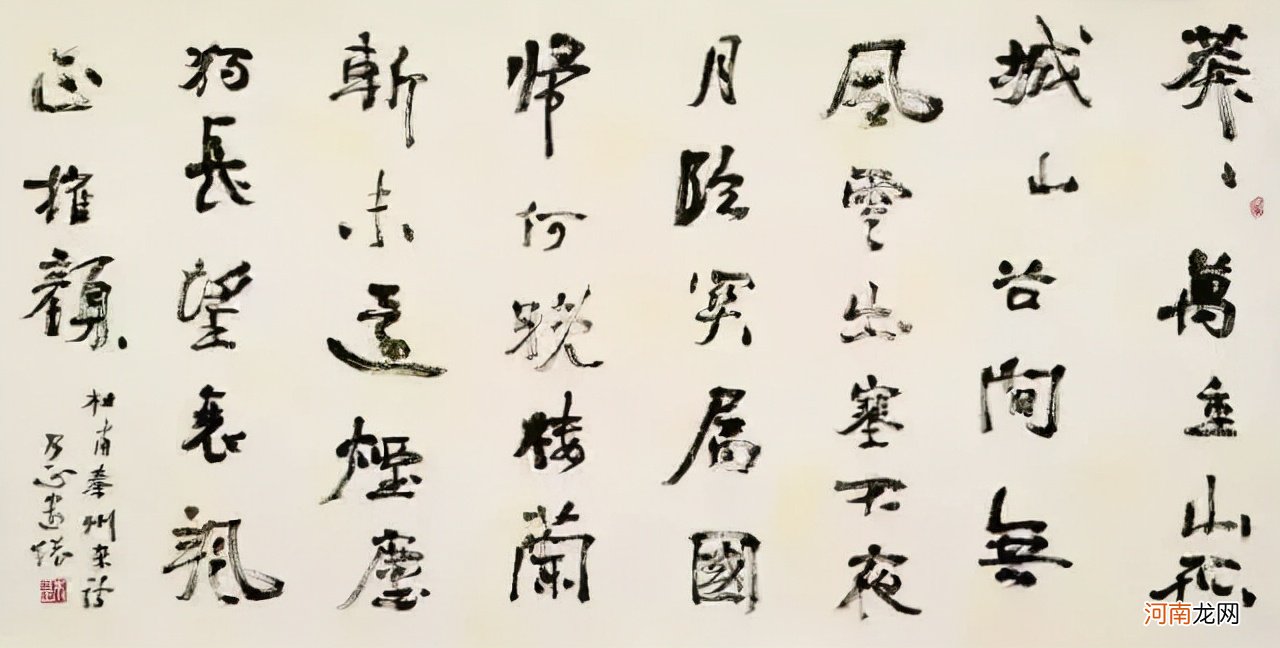 莽〻萬重山孤
城山谷間無
風雲出塞不夜
月臨关属國
帰何晚楼蘭
斬未還煙塵
獨長望衰颯
正摧顏
杜甫秦州杂詩
乃正書
河南龙网